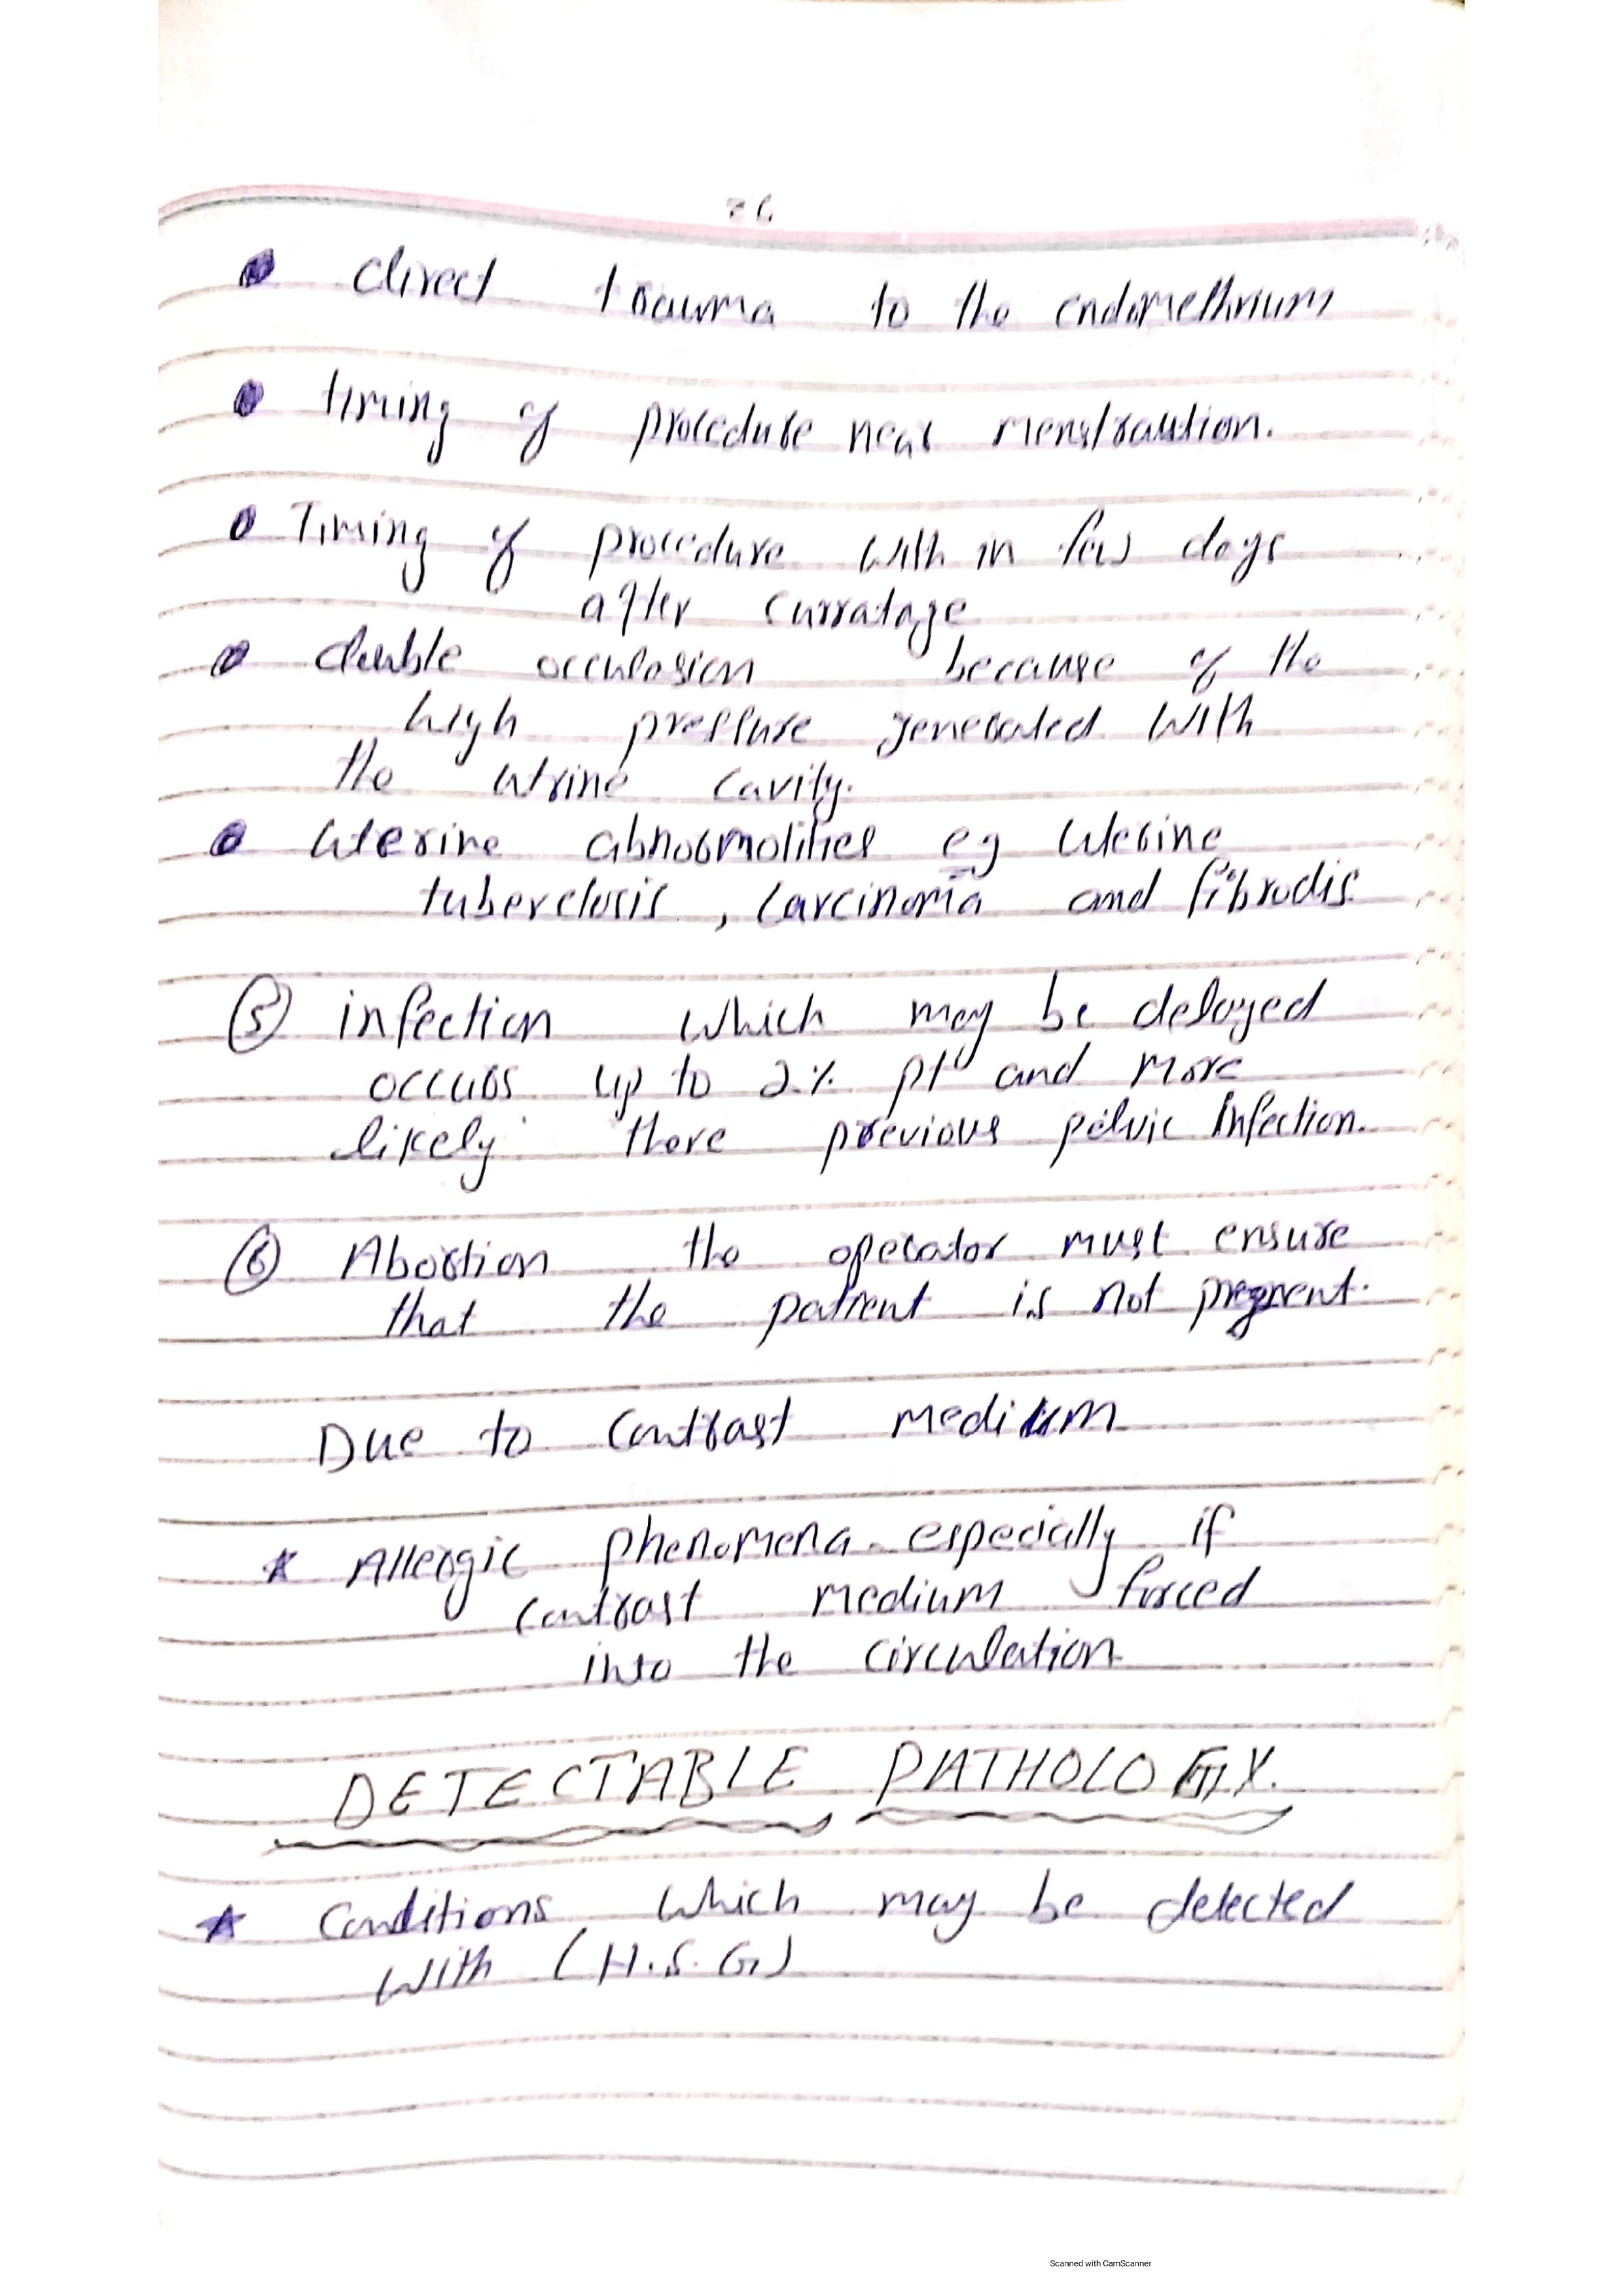 76
• direct trauma to the endomethrium
• timing of procedure near menstraution.
• Timing of procedure with in few days
after curratage
• duble occulosion because of the
high pressure generated with
the utrine cavity.
• uterine abnormolities eg uterine
tuberclosis, carcinoma and fibrodis.
(5) infection which may be delayed
occurs up to 2% pt and more
likely there previous pelvic infection.
(6) Abortion the operator must ensure
that the patient is not pregnent.
Due to contrast medium
* Allergic phenomena especially if
contrast medium forced
into the circulation
DETECTABLE PATHOLOGY.
* Conditions which may be detected
with (H.S.G)
Scanned with CamScanner